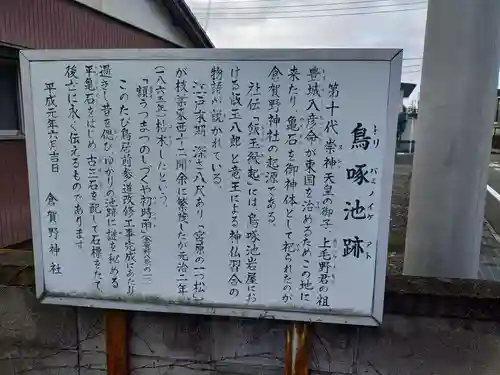 鳥啄池跡
トリバミノイケアト
第十代崇神天皇の御子・上毛野君の祖
豊城入彦命が東国を治めるためこの地に
来たり、亀石を御神体として祀られたのが
倉賀野神社の起源である。
社伝「飯玉縁起」には、鳥啄池岩屋にお
ける飯玉八郎と竜王による神仏習合の
物語が説かれている。
江戸末期、深さ八尺あり「宮原の一つ松」
が枝葉東西十二間余に繁茂したが元治二年
(一八六五年)枯木したという。
「頼うつまつのしづくや初時雨」
このたび鳥居前参道改修工事完成にあたり
過ぎし昔を偲びゆかりの池跡に謎を秘める
平亀石をはじめ古三石を配して石標をたて、
後世に永く伝えるものであります
平成元年六月吉日
倉賀野神社